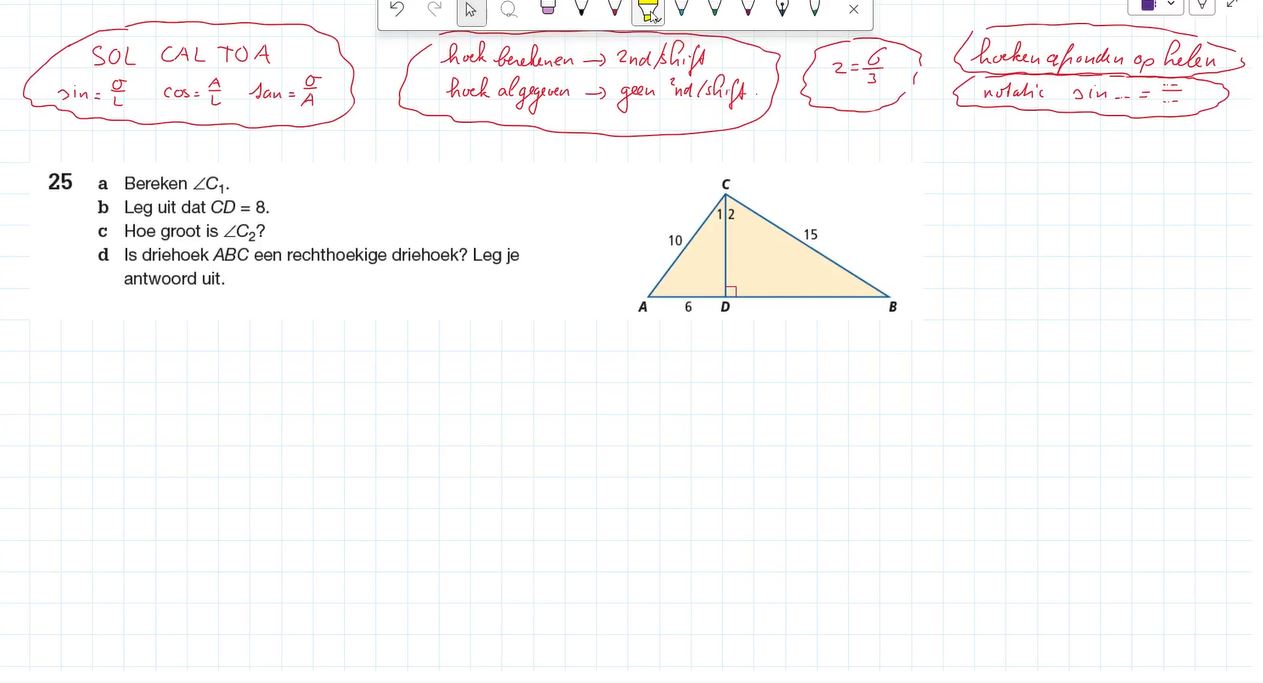 SOL CAL TOA
sin = O/L cos = A/L tan = O/A
hoek berekenen → 2nd/shift
hoek al gegeven → geen 2nd/shift.
2 = 6/3
hoeken afronden op helen
notatie sin ... = ...
25 a Bereken ∠C₁.
b Leg uit dat CD = 8.
c Hoe groot is ∠C₂?
d Is driehoek ABC een rechthoekige driehoek? Leg je
antwoord uit.
C
1 2
10
15
A
6
D
B